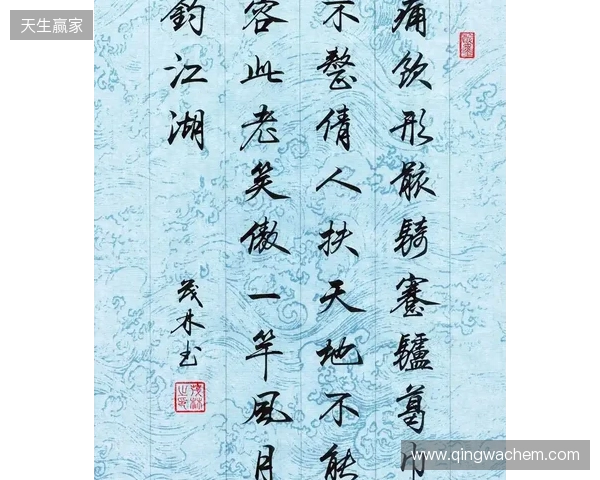 天生赢家
痛飲形骸騎蹇驢葛巾
不整倩人扶天地不能
容此老笑傲一竿風月
釣江湖
茂林书
www.qingwachem.com